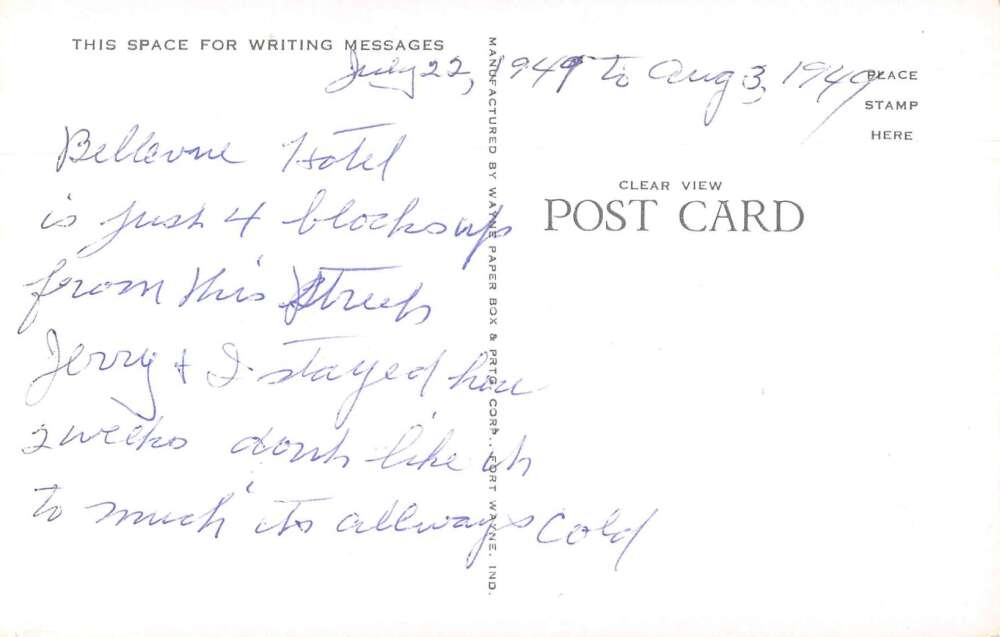 THIS SPACE FOR WRITING MESSAGES
July 22, 1949 to Aug 3, 1949
PLACE
STAMP
HERE
Bellevue Hotel
is just 4 blocks up
from this street
Jerry + I stayed here
2 weeks don't like it
to much its allways Cold
CLEAR VIEW
POST CARD
MANUFACTURED BY WAYNE PAPER BOX & PRTG. CORP., FORT WAYNE, IND.